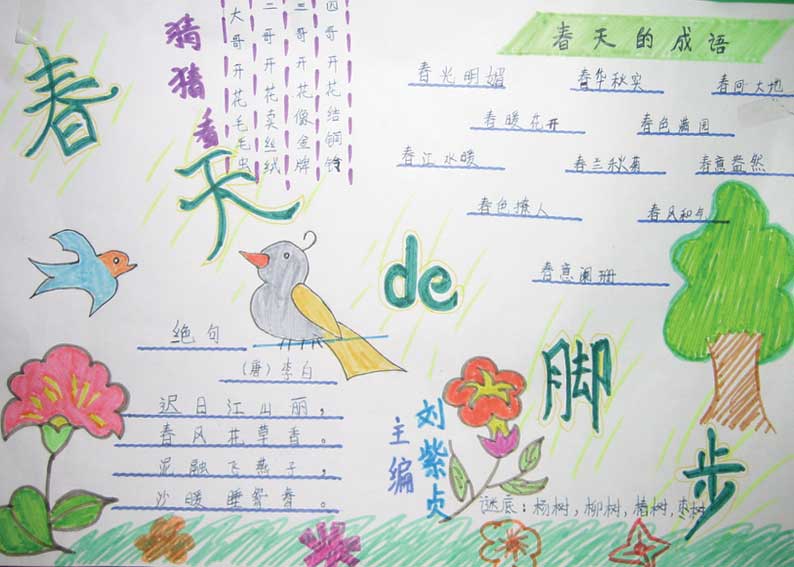 春天de脚步
猜猜看
大哥开花毛毛虫
二哥开花卖丝绒
三哥开花像金牌
四哥开花结铜铃
春天的成语
春光明媚 春华秋实 春回大地
春暖花开 春色满园
春江水暖 春兰秋菊 春意盎然
春色撩人 春风和气
春意阑珊
绝句
（唐）李白
迟日江山丽，
春风花草香。
泥融飞燕子，
沙暖睡鸳鸯。
主编
刘紫贞
谜底：杨树，柳树，椿树，枣树